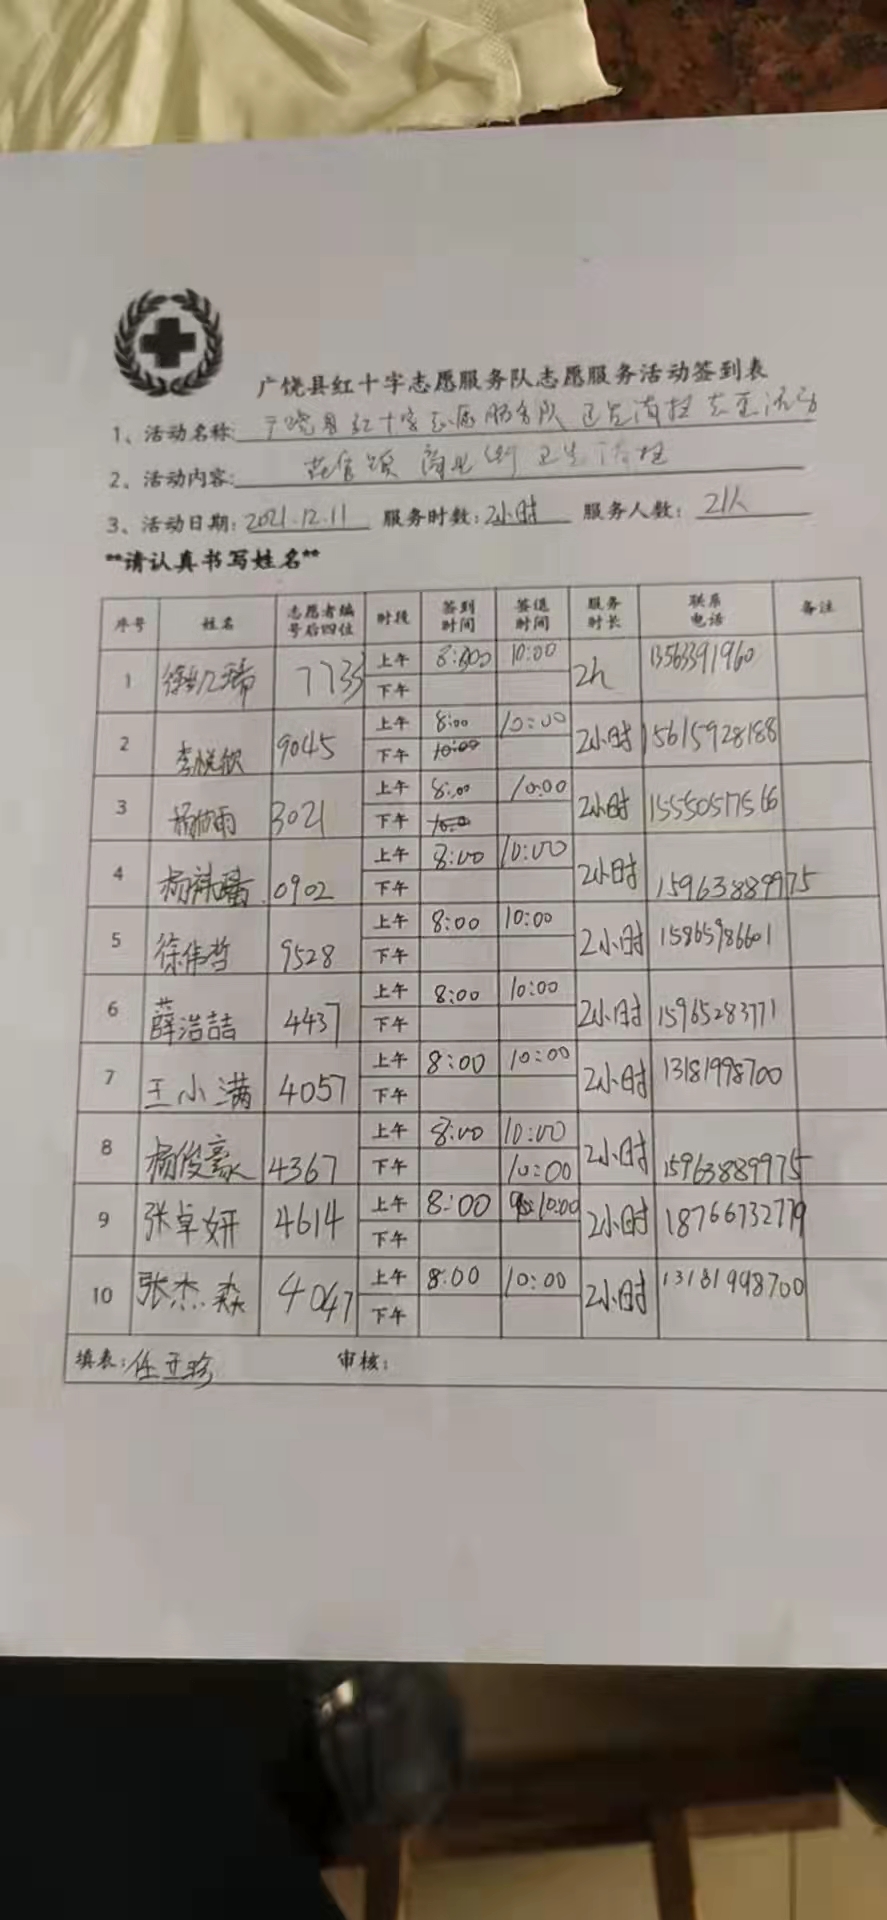 广饶县红十字志愿服务队志愿服务活动签到表
1、活动名称: 广饶县红十字志愿服务队卫生清扫志愿活动
2、活动内容: 商业街卫生清扫
3、活动日期: 2021.12.11 服务时数: 2小时 服务人数: 21人
**请认真书写姓名**
序号 姓名 志愿者编号后四位 时段 签到时间 签退时间 服务时长 联系电话 备注
1 7735 上午 8:00 10:00 2h 13563391960
下午
2 李悦钦 9045 上午 8:00 10:00 2小时 15615928188
下午 10:00
3 3021 上午 8:00 10:00 2小时 15550517566
下午
4 0902 上午 8:00 10:00 2小时 15963889975
下午
5 徐伟哲 9528 上午 8:00 10:00 2小时 15865986601
下午
6 薛浩喆 4437 上午 8:00 10:00 2小时 15965283771
下午
7 王小满 4057 上午 8:00 10:00 2小时 13181998700
下午
8 杨俊豪 4367 上午 8:00 10:00 2小时 15963889975
下午 10:00
9 张卓妍 4614 上午 8:00 10:00 2小时 18766732779
下午
10 张杰森 4047 上午 8:00 10:00 2小时 13181998700
下午
填表: 任亚珍 审核: